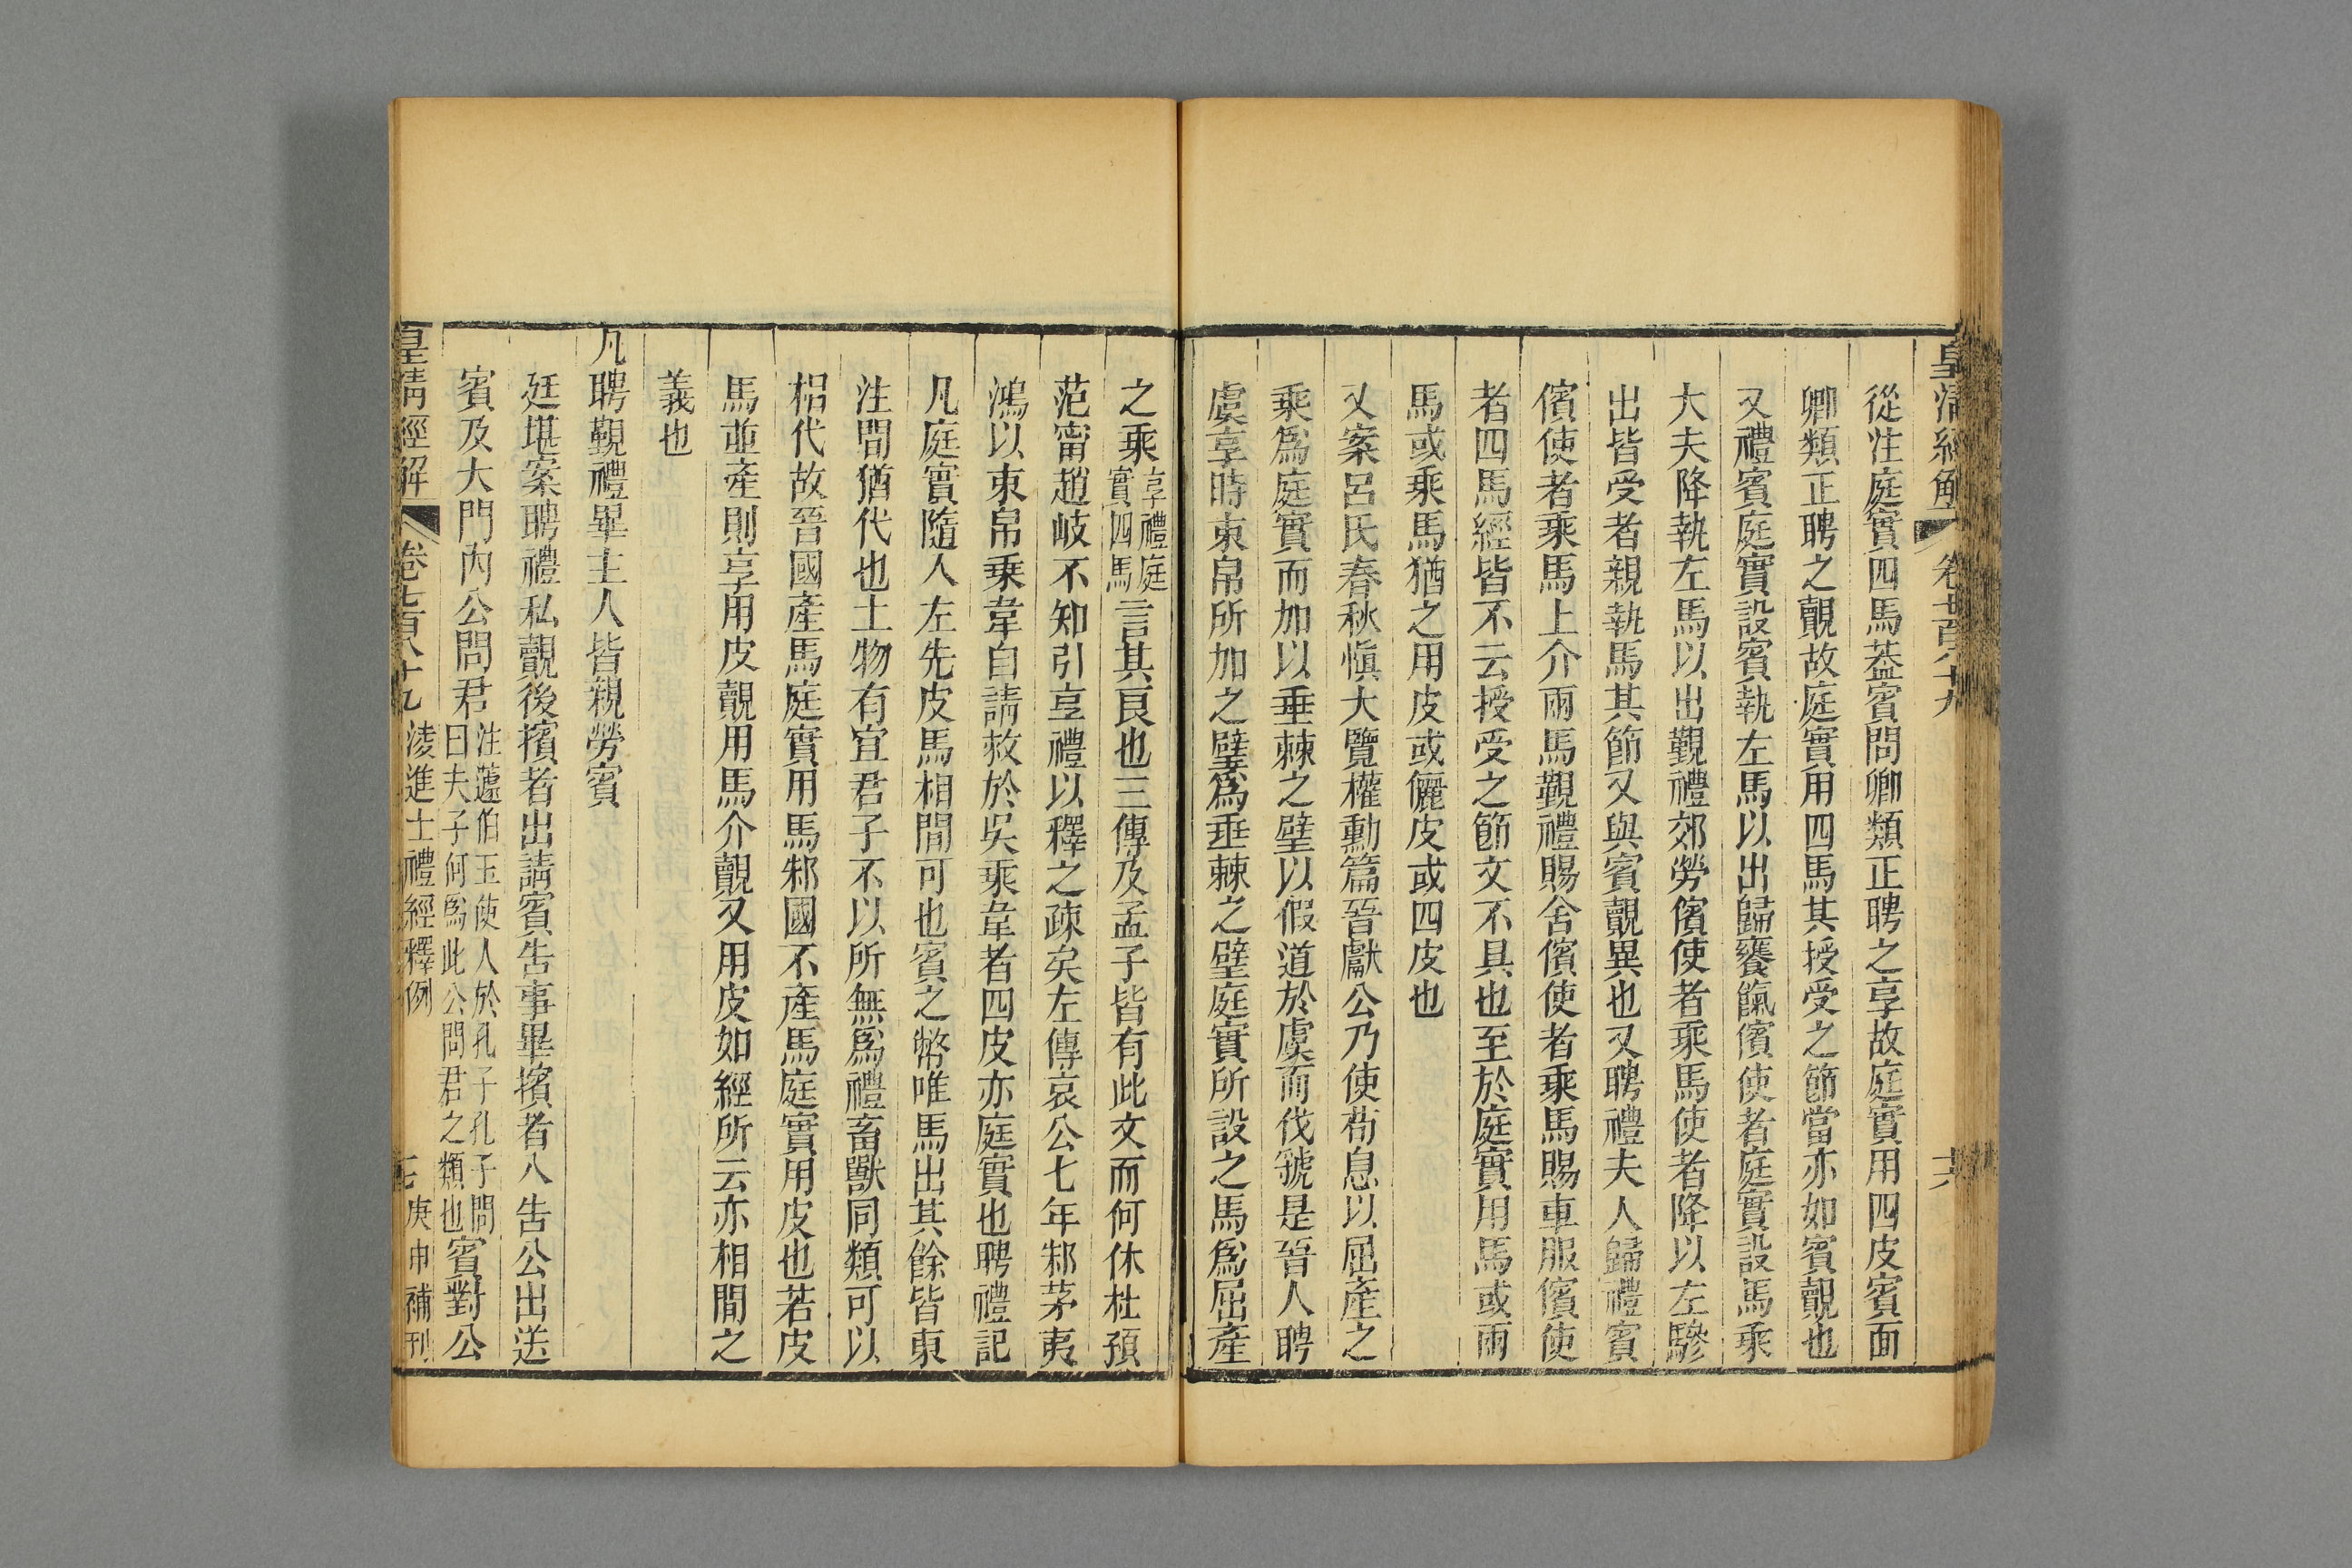 皇清經解 卷七百八十九 十六
從注庭實四馬葢賓問卿類正聘之享故庭實用四皮賓面
卿類正聘之覿故庭實用四馬其授受之節當亦如賓覿也
又禮賓庭實設賓執左馬以出歸饔餼儐使者庭實設馬乘
大夫降執左馬以出覲禮郊勞儐使者乘馬使者降以左驂
出皆受者親執馬其節又與賓覿異也又聘禮夫人歸禮賓
儐使者乘馬上介兩馬覲禮賜舍儐使者乘馬賜車服儐使
者四馬經皆不云授受之節文不具也至於庭實用馬或兩
馬或乘馬猶之用皮或儷皮或四皮也
又案呂氏春秋愼大覽權勳篇晉獻公乃使荀息以屈產之
乘爲庭實而加以垂棘之璧以假道於虞而伐虢是晉人聘
虞享時束帛所加之璧爲垂棘之璧庭實所設之馬爲屈產
之乘享禮庭實四馬言其良也三傳及孟子皆有此文而何休杜預
范甯趙岐不知引享禮以釋之疎矣左傳哀公七年邾茅夷
鴻以束帛乘韋自請救於吳乘韋者四皮亦庭實也聘禮記
凡庭實隨人左先皮馬相間可也賓之幣唯馬出其餘皆東
注間猶代也土物有宜君子不以所無爲禮畜獸同類可以
相代故晉國產馬庭實用馬邾國不產馬庭實用皮也若皮
馬並產則享用皮覿用馬介覿又用皮如經所云亦相間之
義也
凡聘覲禮畢主人皆親勞賓
廷堪案聘禮私覿後擯者出請賓告事畢擯者入告公出送
賓及大門內公問君注蘧伯玉使人於孔子孔子問曰夫子何爲此公問君之類也賓對公
皇清經解 卷七百八十九 淩進士禮經釋例 七 庚申補刊